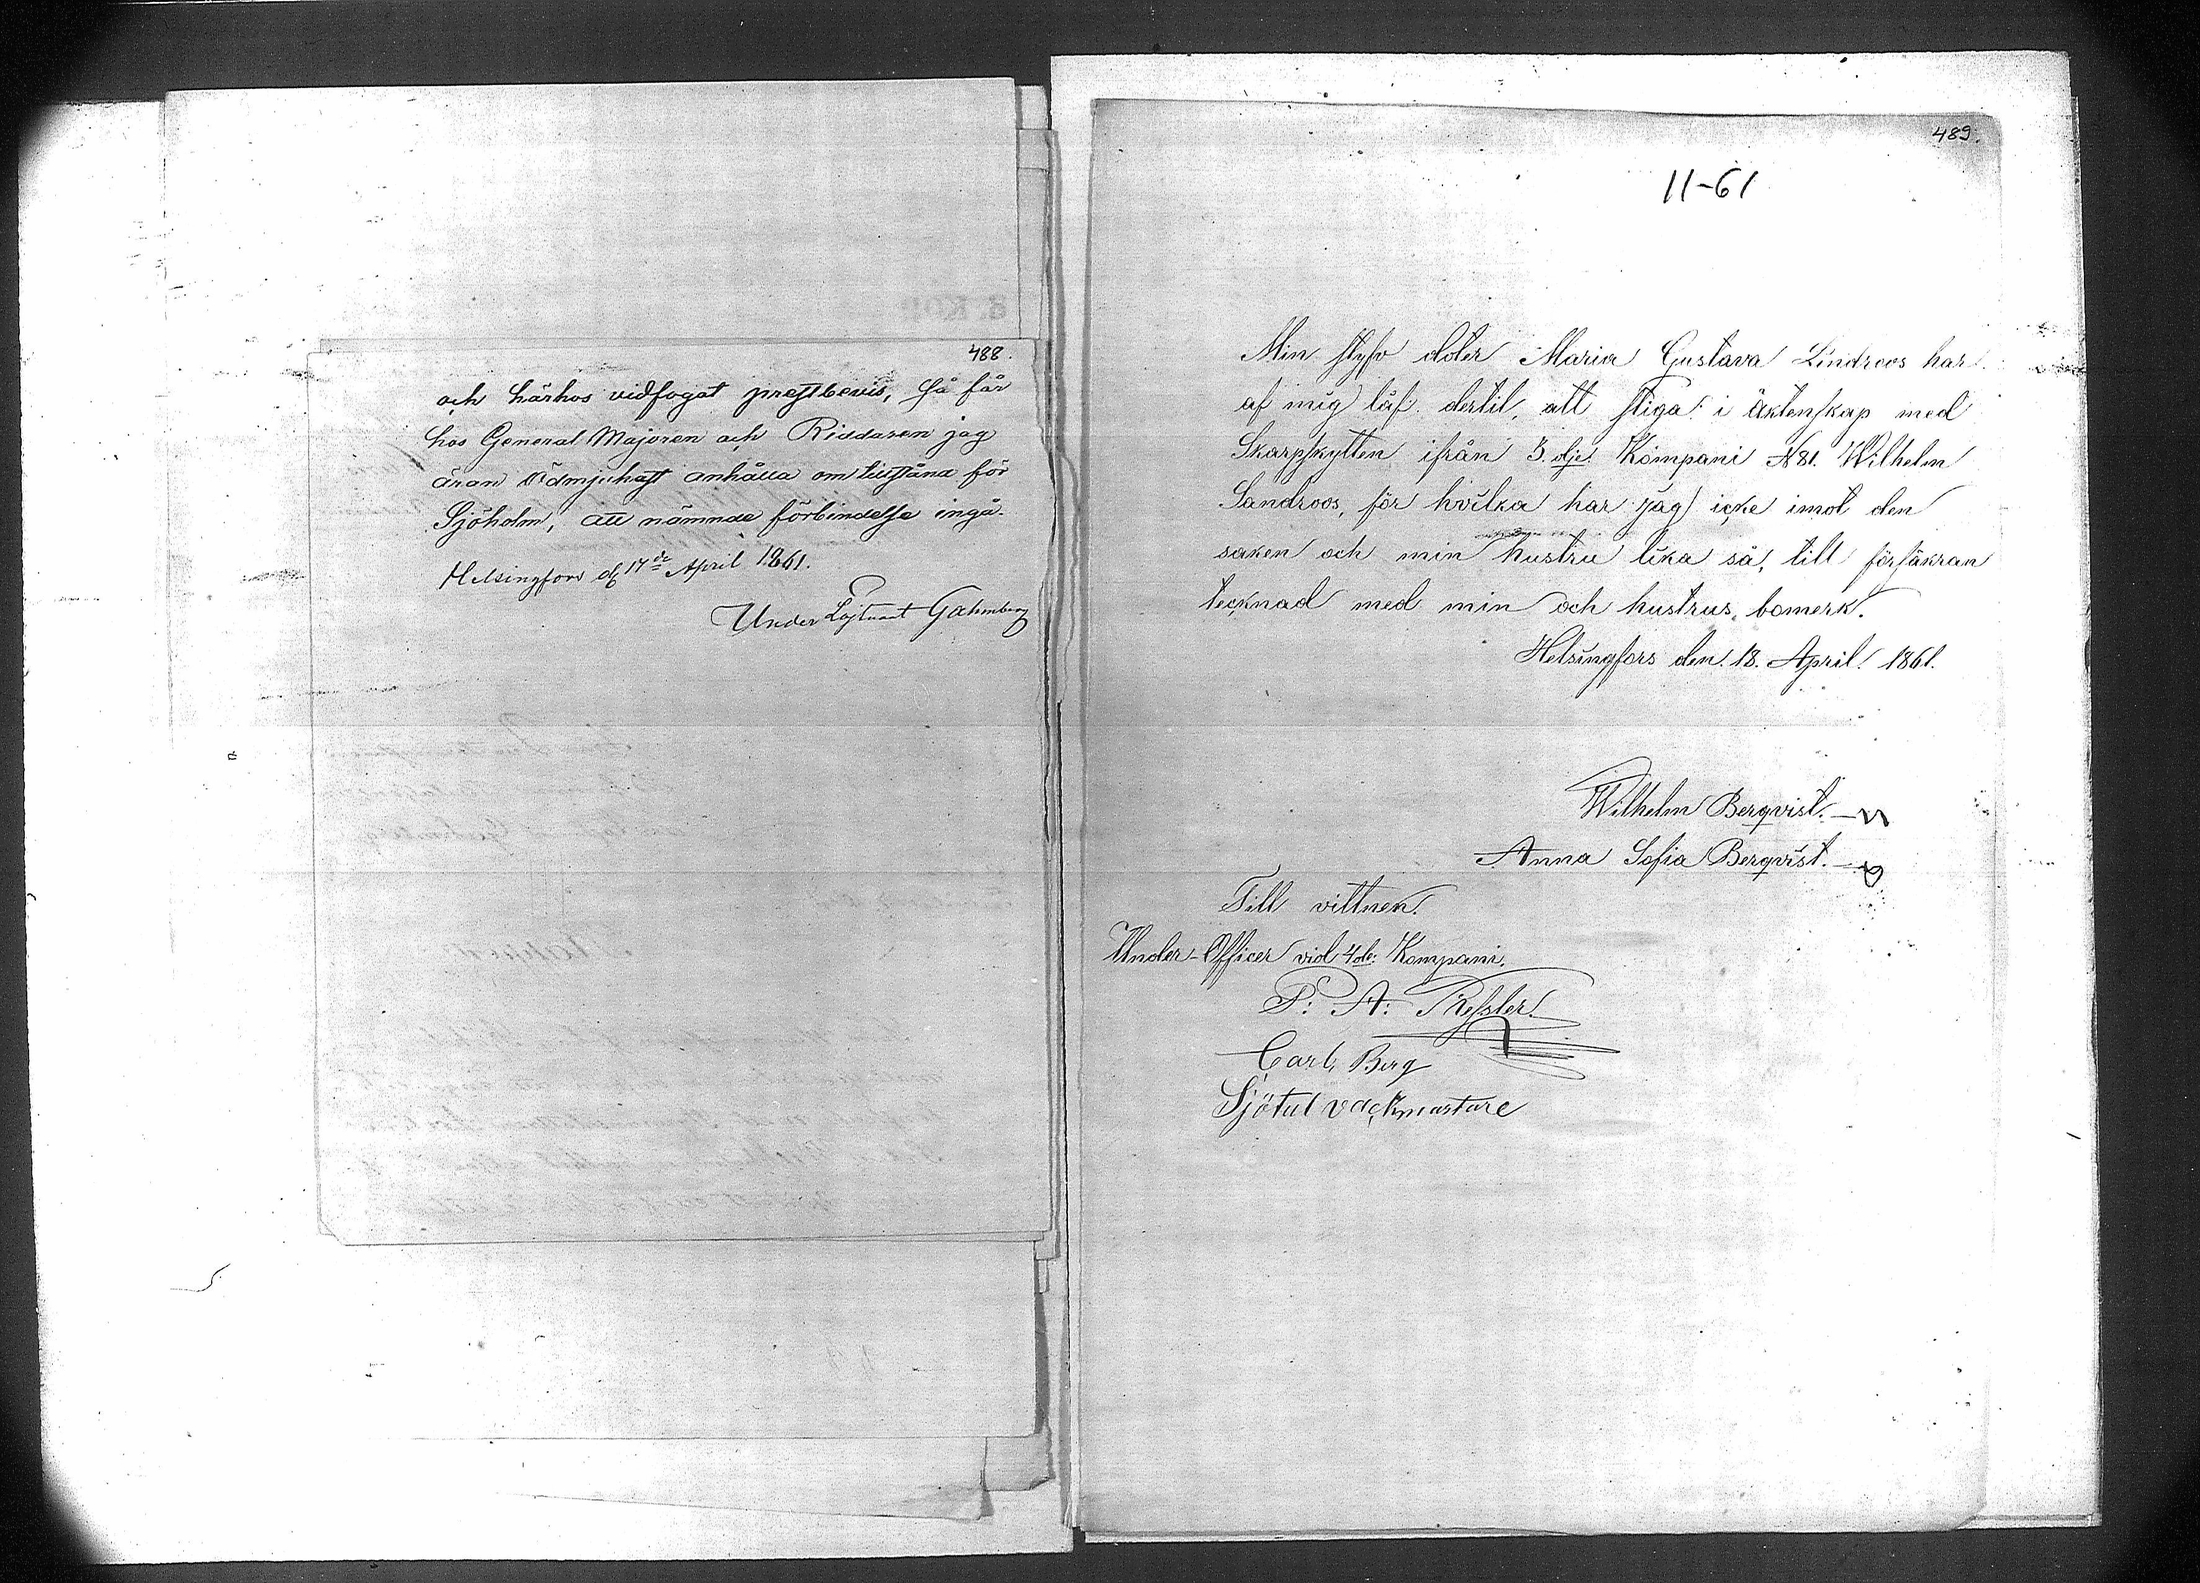 488.
och härhos vidfogat prestbevis, så får
hos General Majoren och Riddaren jag
äran ödmjukast anhålla om tillstånd för
Sjöholm, att nämnde förbindelse ingå.
Helsingfors d. 17de April 1861.
Under Löjtnant Gahmberg
489.
11-61
Min styf doter Maria Gustava Lindroos har
af mig låf dertil, att stiga i äktenskap med
Skarpskytten ifrån 3.dje Kompani N 81. Wilhelm
Sandroos, för hvilka har jag icke imot den
saken och min hustru lika så, till försäkran
tecknad med min och hustrus bomerk.
Helsingfors den 18. April 1861.
Wilhelm Berqvist.
Anna Sofia Berqvist.
Till vittnen.
Under-Officer vid 4de Kompani.
P: A:
Carl Berg
Sjötul vackmastare